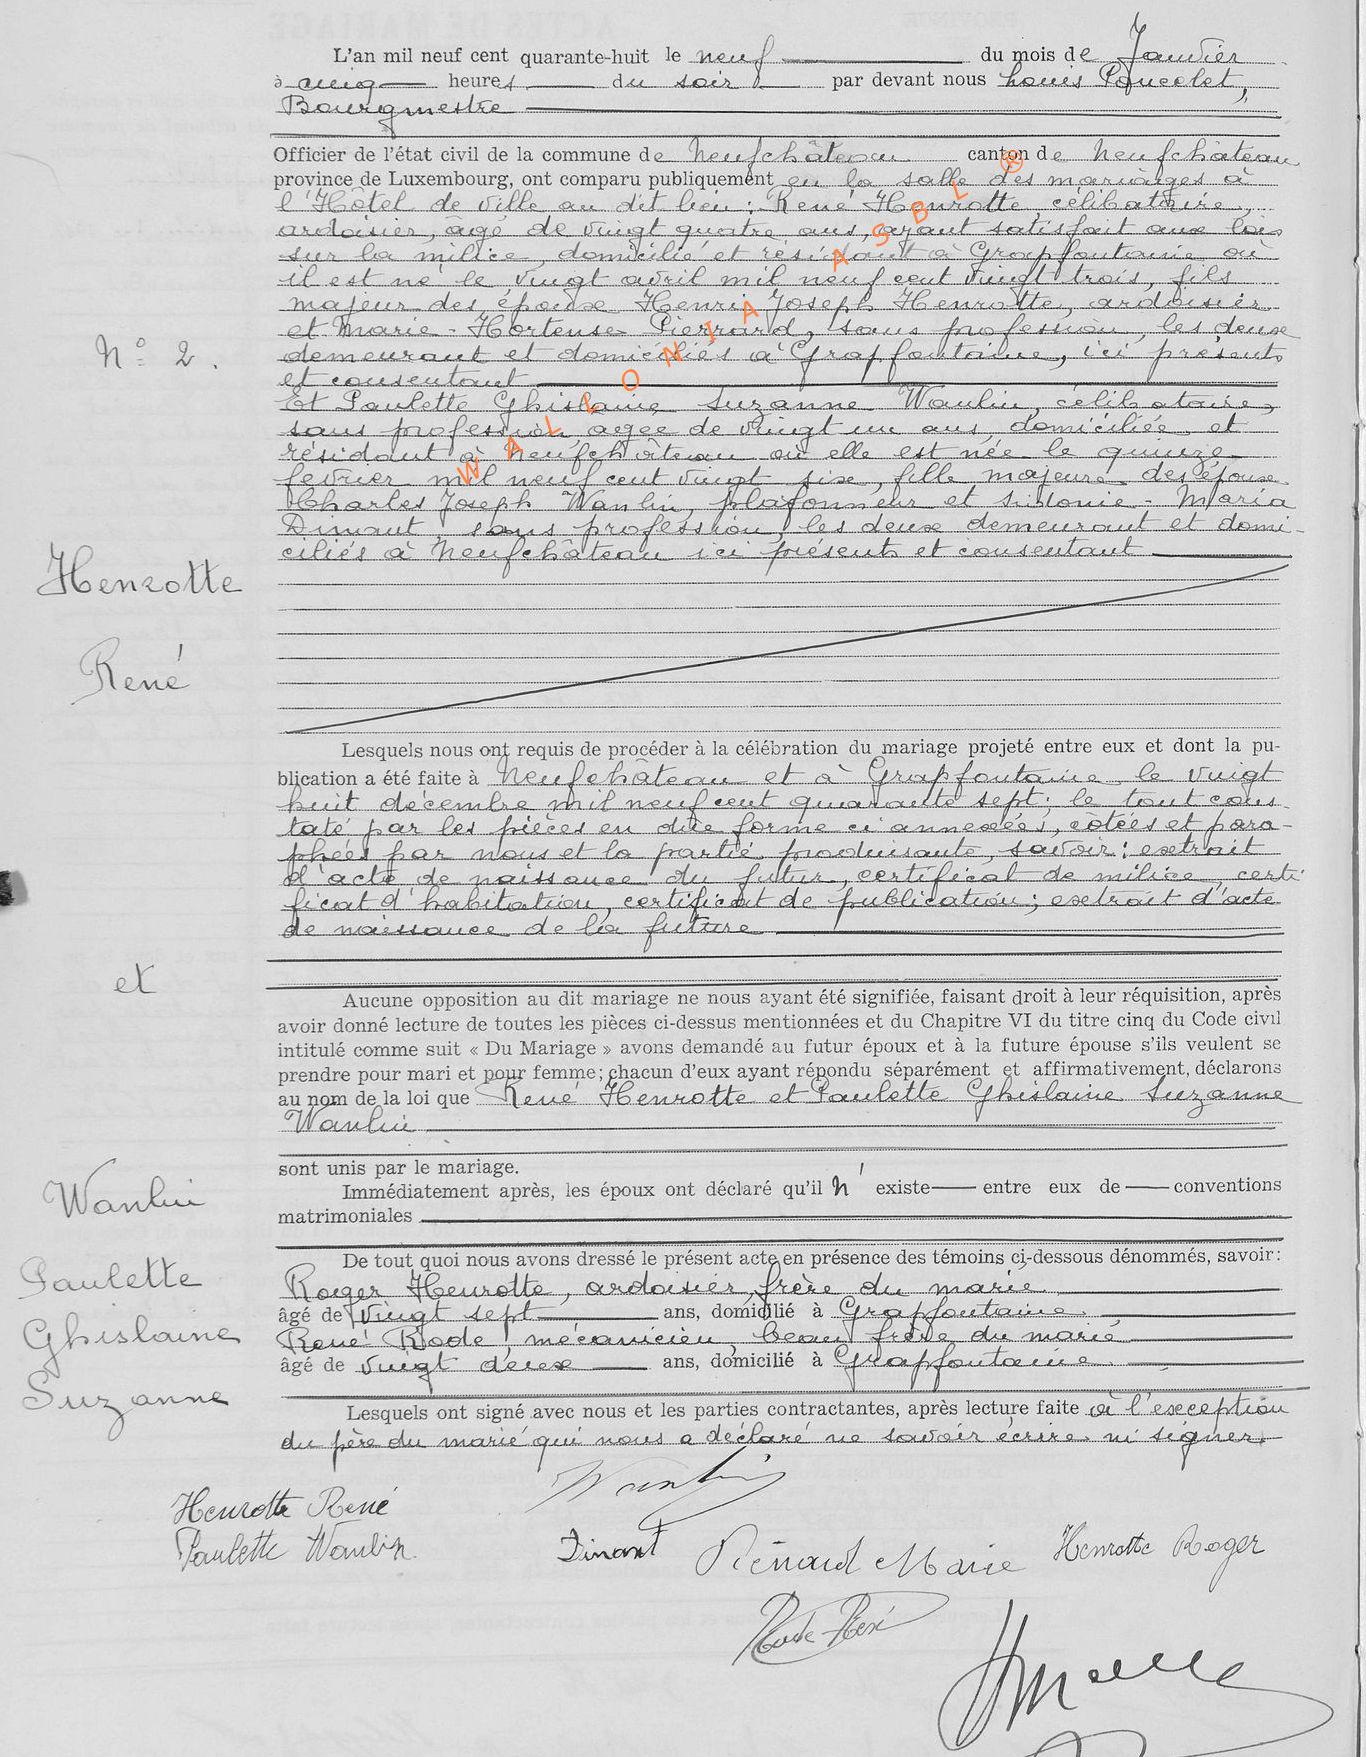 L'an mil neuf cent quarante-huit le neuf du mois de Janvier
à cinq heures du soir par devant nous Louis Poncelet,
Bourgmestre
Officier de l'état civil de la commune de Neufchâteau canton de Neufchâteau
province de Luxembourg, ont comparu publiquement en la salle des mariages à
l'Hôtel de ville au dit lieu : René Henrotte, célibataire,
ardoisier, âgé de vingt quatre ans, ayant satisfait aux lois
sur la milice, domicilié et résidant à Grapfontaine où
il est né le vingt avril mil neuf cent vingt trois, fils
majeur des époux Henri Joseph Henrotte, ardoisier
et Marie-Hortense Pierrard, sans profession, les deux
N° 2.
demeurant et domiciliés à Grapfontaine, ici présents
et consentant
Et Paulette Ghislaine Suzanne Wanlin, célibataire,
sans profession, agée de vingt un ans, domiciliée et
résidant à Neufchâteau où elle est née le quinze
fevrier mil neuf cent vingt six, fille majeure des époux
Charles Joseph Wanlin, plafonneur et Sidonie-Maria
Dinant, sans profession, les deux demeurant et domi-
ciliés à Neufchâteau ici présents et consentant
WALLONIA ASBL ®
Henrotte
René
Lesquels nous ont requis de procéder à la célébration du mariage projeté entre eux et dont la pu-
blication a été faite à Neufchâteau et à Grapfontaine le vingt
huit décembre mil neuf cent quarante sept ; le tout cons-
taté par les pièces en due forme ci annexées, côtées et para-
phées par nous et la partie produisante, savoir : extrait
d'acte de naissance du futur, certificat de milice, certi
ficat d'habitation, certificat de publication ; extrait d'acte
de naissance de la future
et
Aucune opposition au dit mariage ne nous ayant été signifiée, faisant droit à leur réquisition, après
avoir donné lecture de toutes les pièces ci-dessus mentionnées et du Chapitre VI du titre cinq du Code civil
intitulé comme suit « Du Mariage » avons demandé au futur époux et à la future épouse s'ils veulent se
prendre pour mari et pour femme; chacun d'eux ayant répondu séparément et affirmativement, déclarons
au nom de la loi que René Henrotte et Paulette Ghislaine Suzanne
Wanlin
sont unis par le mariage.
Immédiatement après, les époux ont déclaré qu'il n' existe entre eux de conventions
matrimoniales
Wanlin
Paulette
Ghislaine
Suzanne
De tout quoi nous avons dressé le présent acte en présence des témoins ci-dessous dénommés, savoir :
Roger Henrotte, ardoisier, frère du marié
âgé de vingt sept ans, domicilié à Grapfontaine.
René Rode, mécanicien, beau frère du marié
âgé de vingt deux ans, domicilié à Grapfontaine.
Lesquels ont signé avec nous et les parties contractantes, après lecture faite à l'exception
du père du marié qui nous a déclaré ne savoir écrire ni signer.
Henrotte René
Wanlin
Paulette Wanlin.
Dinant
Marie
Henrotte Roger
Rode René